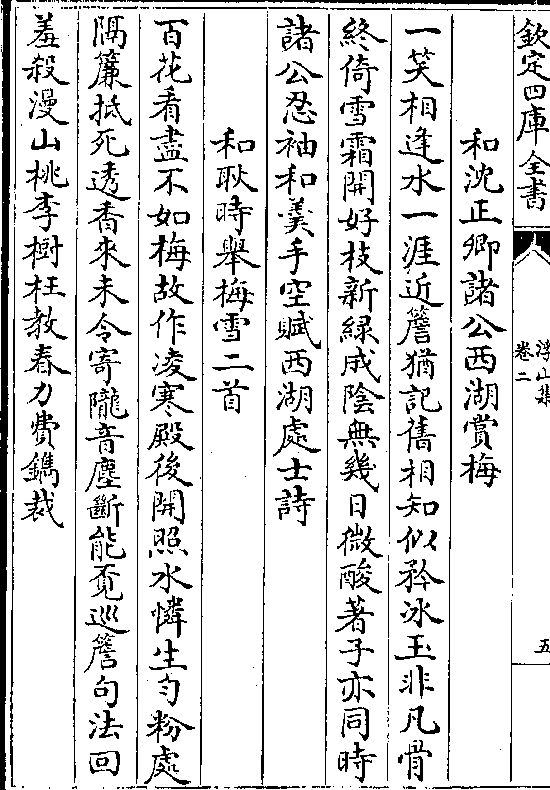 欽定四庫全書
浮山集
卷二
五
和沈正卿諸公西湖賞梅
一笑相逢水一涯近簷猶記舊相知似矜冰玉非凡骨
終倚雪霜開好枝新緑成陰無幾日微酸著子亦同時
諸公忍袖和羮手空賦西湖處士詩
和耿時舉梅雪二首
百花看盡不如梅故作凌寒殿後開照水憐生勻粉處
隔簾抵死透香來未令寄隴音塵斷能覔巡簷句法回
羞殺漫山桃李樹枉教春力費鐫裁